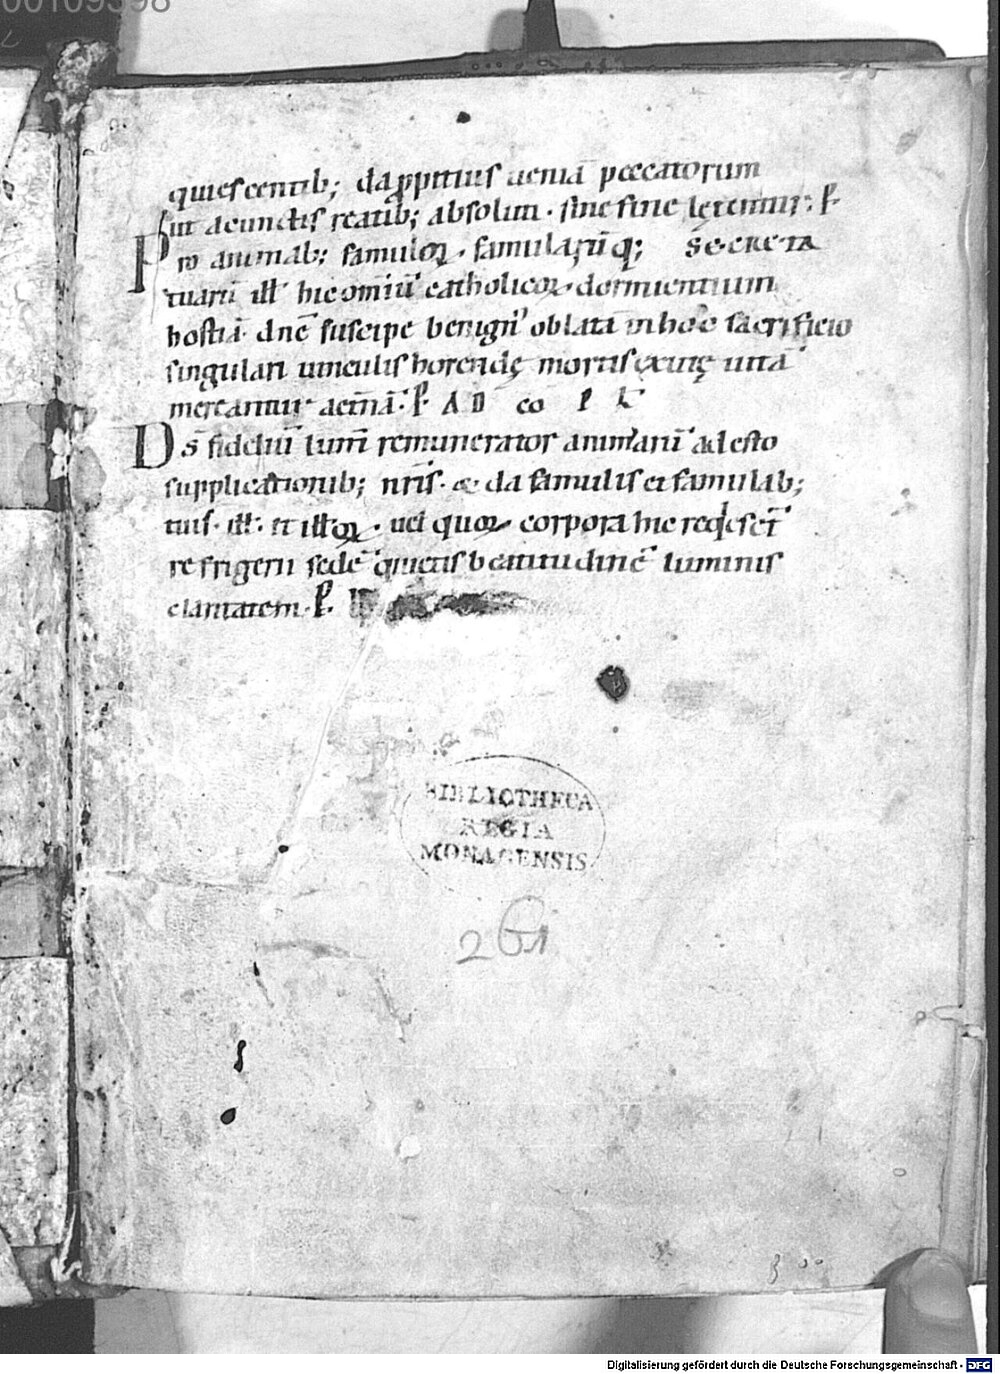 00109398
quiescentib; da ꝓpitius ueniā peccatorum
ut a cunctis reatib; absoluti · sine fine lętentur · P̄
Pro animab; famuloꝝ · famularūq; SECRETA
tuarū ill' hic omiū catholicoꝝ dormientium
hostiā dn̄e suscipe benign' oblatā ut hoc sacrificio
singulari uinculis horrendę mortis exutę uitā
mereantur aet̄nā · P̄ AD CO
Ds̄ fideliū lum̄ remunerator animarū adesto
supplicationib; nr̄is · & da famulis et famulab;
tuis · ill · et illoꝝ · uel quoꝝ corpora hic reqꝯescēt
refrigerii sedē quietis beatitudinē luminis
claritatem · P̄
BIBLIOTHECA
REGIA
MONACENSIS
261
Digitalisierung gefördert durch die Deutsche Forschungsgemeinschaft - DFG